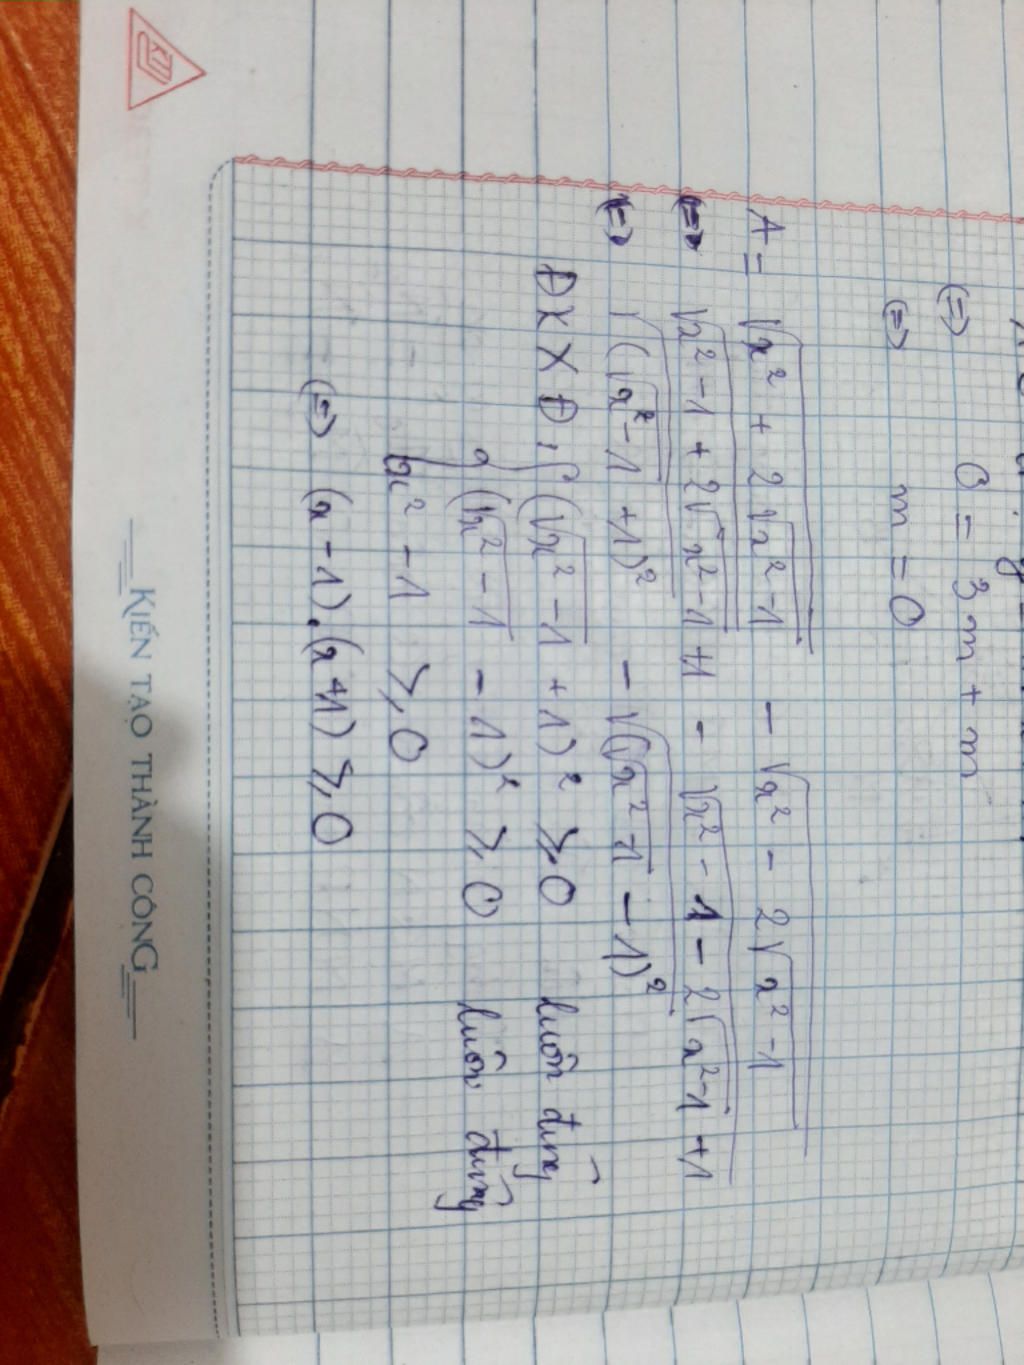 (=) 0 = 3m + m
(=) m = 0
A = √x² + 2√x²-1 - √x² - 2√x²-1
(=) √x²-1 + 2√x²-1 +1 - √x² - 1 - 2√x²-1 +1
(=) √(√x²-1 +1)² - √(√x²-1 - 1)²
ĐKXĐ: { (√x²-1 + 1)² ≥ 0 luôn đúng
(√x²-1 - 1)² ≥ 0 luôn đúng
x² - 1 ≥ 0
(=) (x-1).(x+1) ≥ 0
KIẾN TẠO THÀNH CÔNG